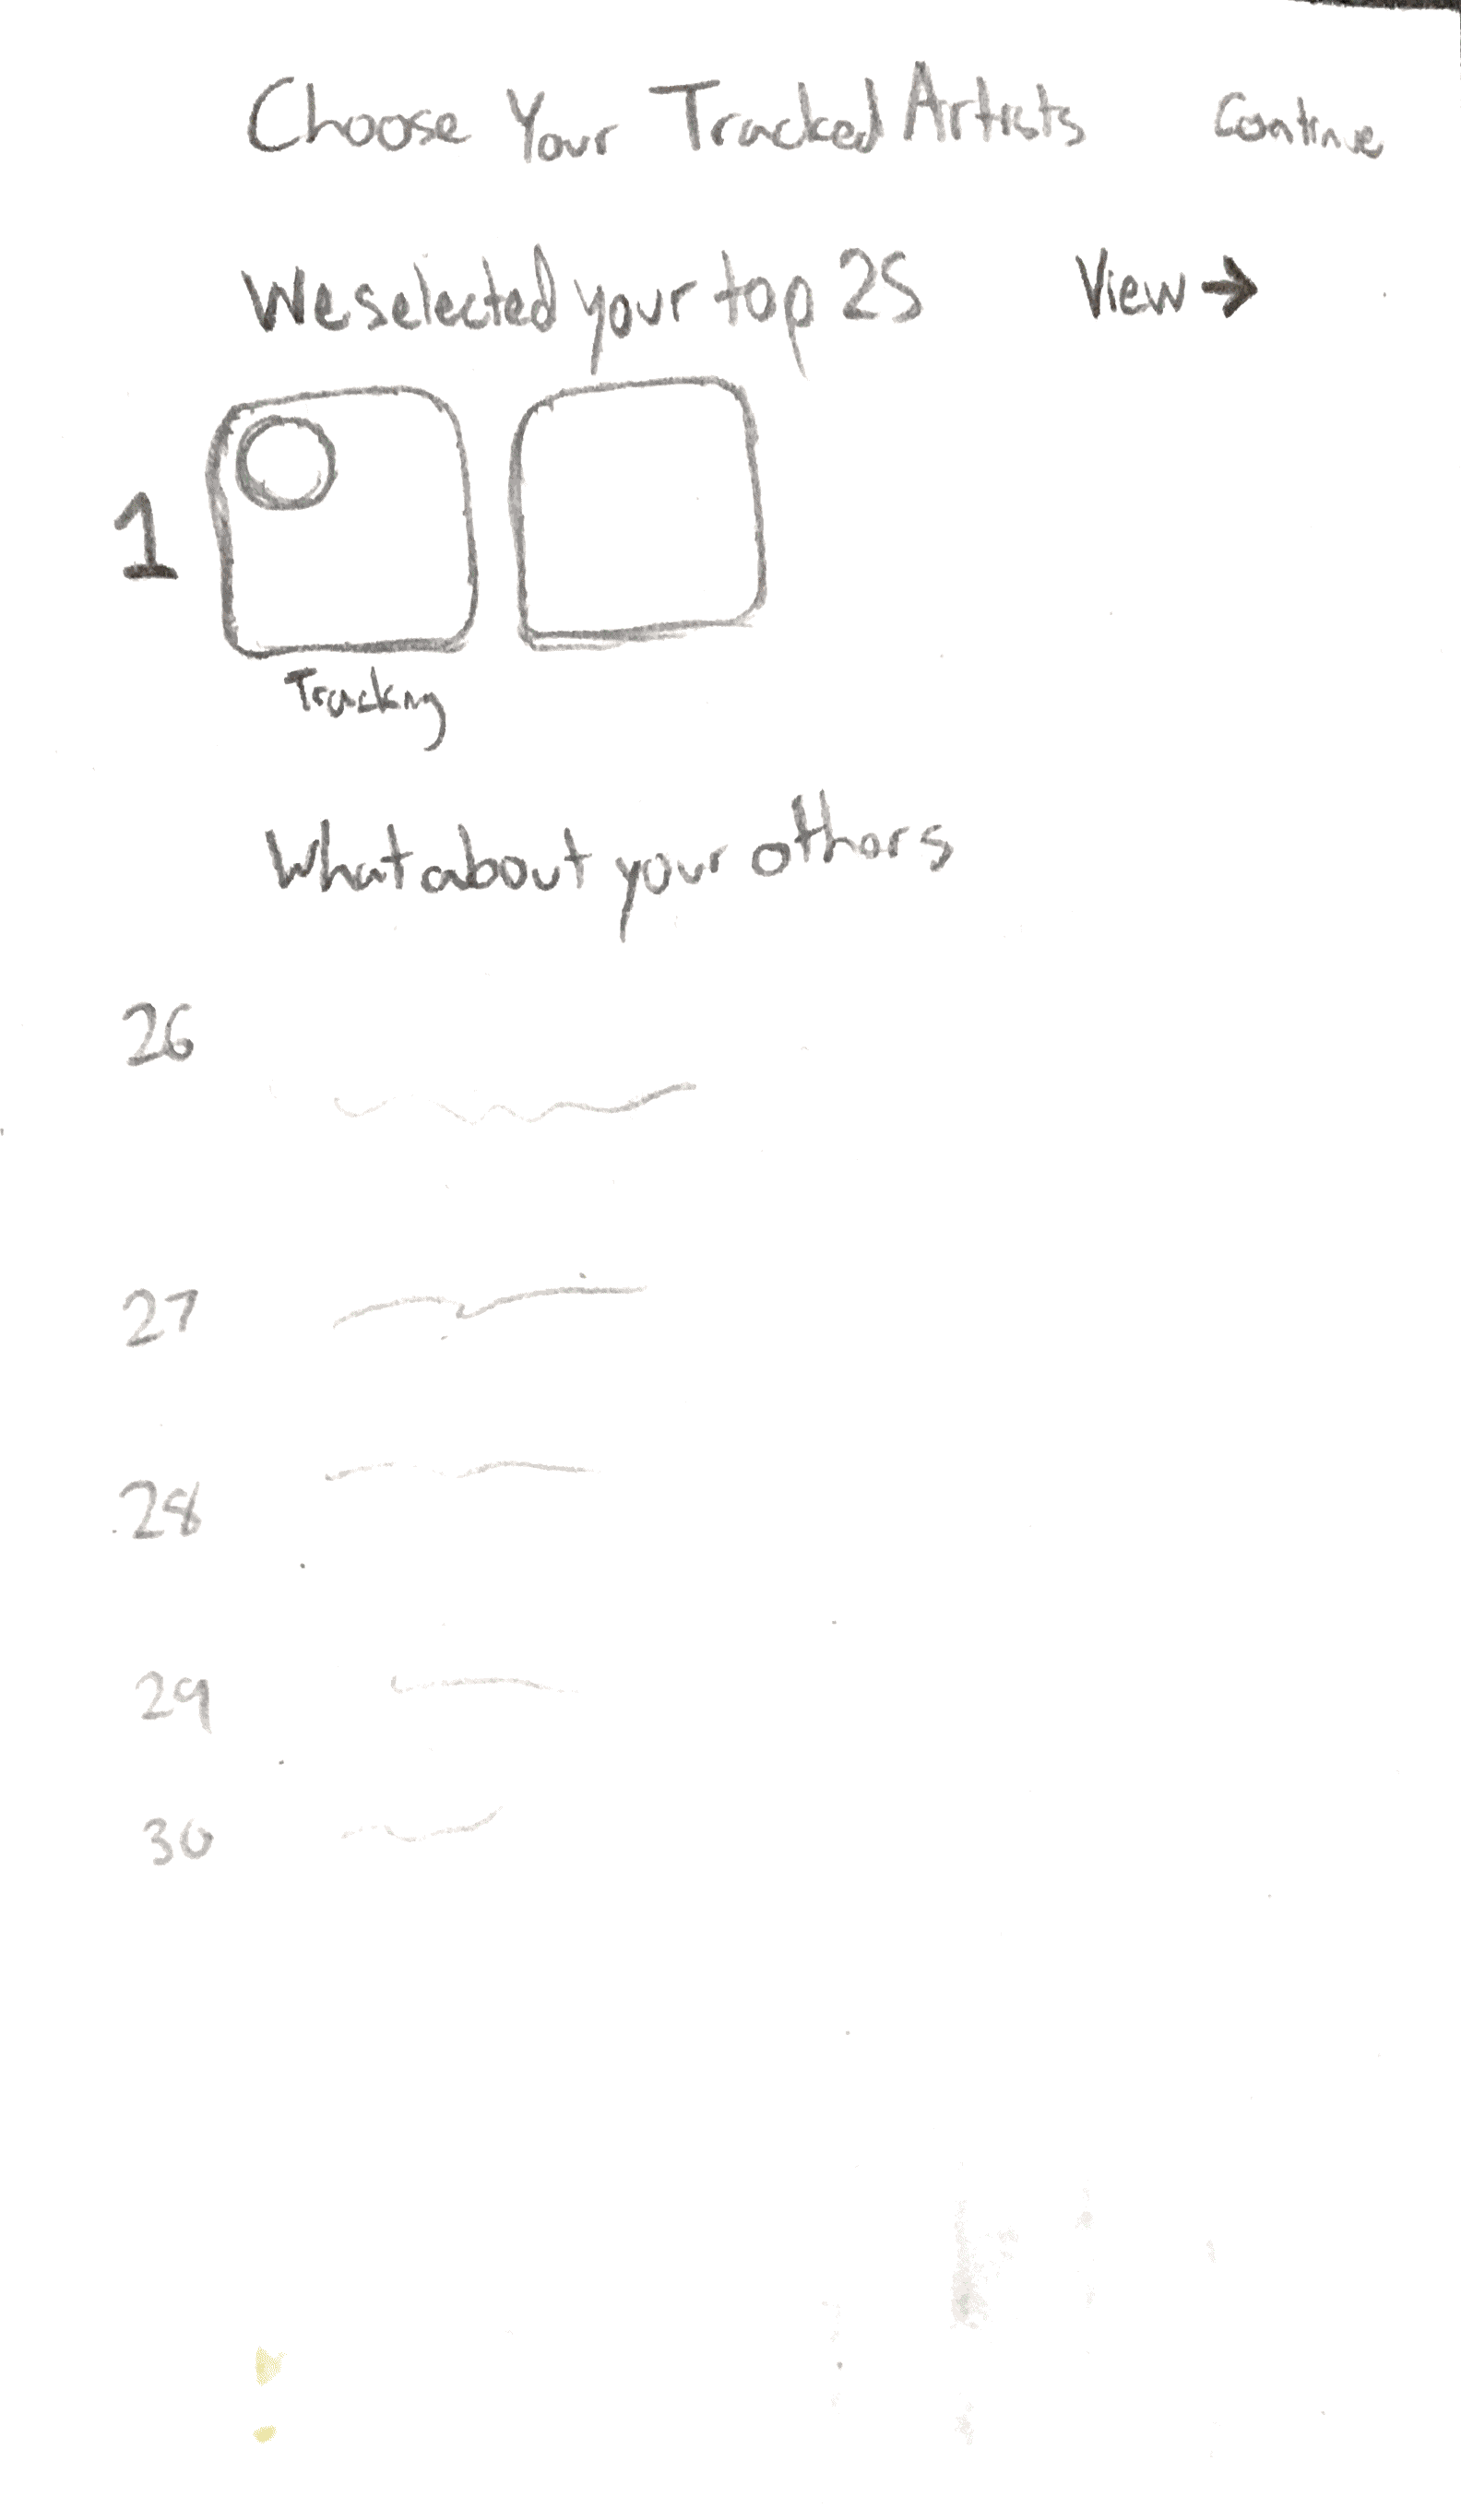 Choose Your Tracked Artists Continue
We selected your top 25 View →
1
Tracking
What about your others
26
27
28
29
30